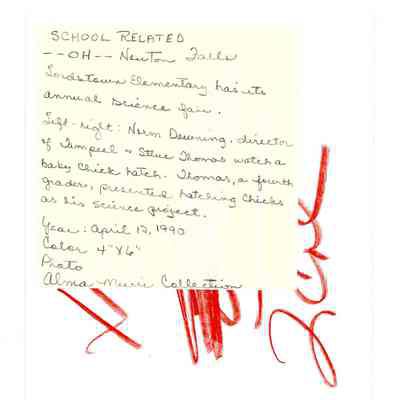 SCHOOL RELATED
--OH-- Newton Falls
Lordstown Elementary has its
annual science fair.
Left-right: Norm Downing, director
of Jumpeel & Steve Thomas watch a
baby chick hatch. Thomas, a fourth
grader, presented hatching chicks
as his science project.
Year: April 12, 1990
Color 4"X6"
Photo
Alma Collection